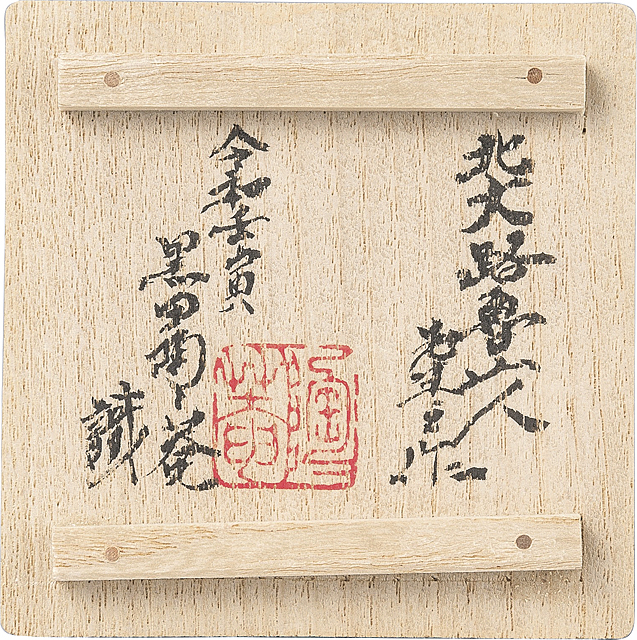 北大路魯山人
令和壬寅
黒田陶々菴
識
陶々菴